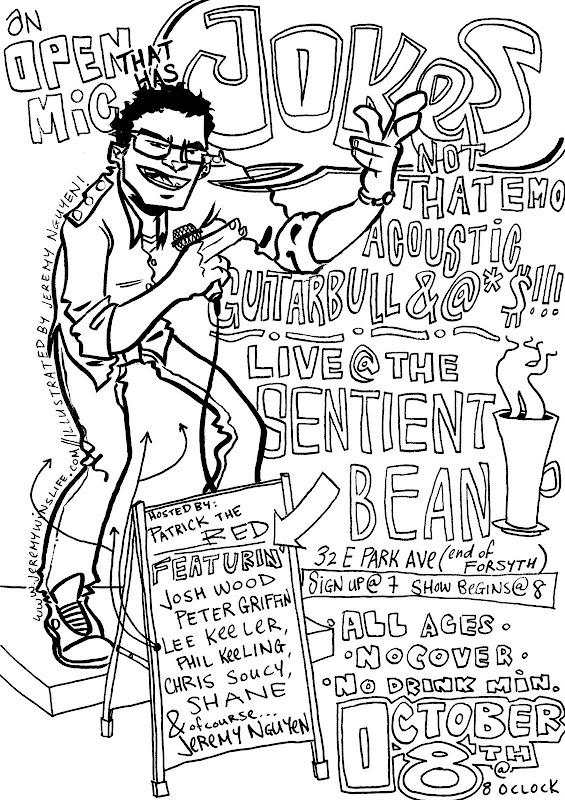 AN
OPEN
MIC
THAT
HAS
JOKES
NOT
THAT EMO
ACOUSTIC
GUITARBULL&@*$!!!
LIVE @ THE
SENTIENT
BEAN
32 E PARK AVE (end of
FORSYTH)
SIGN UP@7 SHOW BEGINS@8
·ALL AGES·
·NO COVER·
·NO DRINK MIN.
OCTOBER
08TH
@
8 O CLOCK
HOSTED BY:
PATRICK THE
RED
FEATURIN'
JOSH WOOD
PETER GRIFFIN
LEE KEELER,
PHIL KEELING,
CHRIS SOUCY,
SHANE
& of course...
JEREMY NGUYEN
www.JEREMYWINSLIFE.com//ILLUSTRATED BY JEREMY NGUYEN!